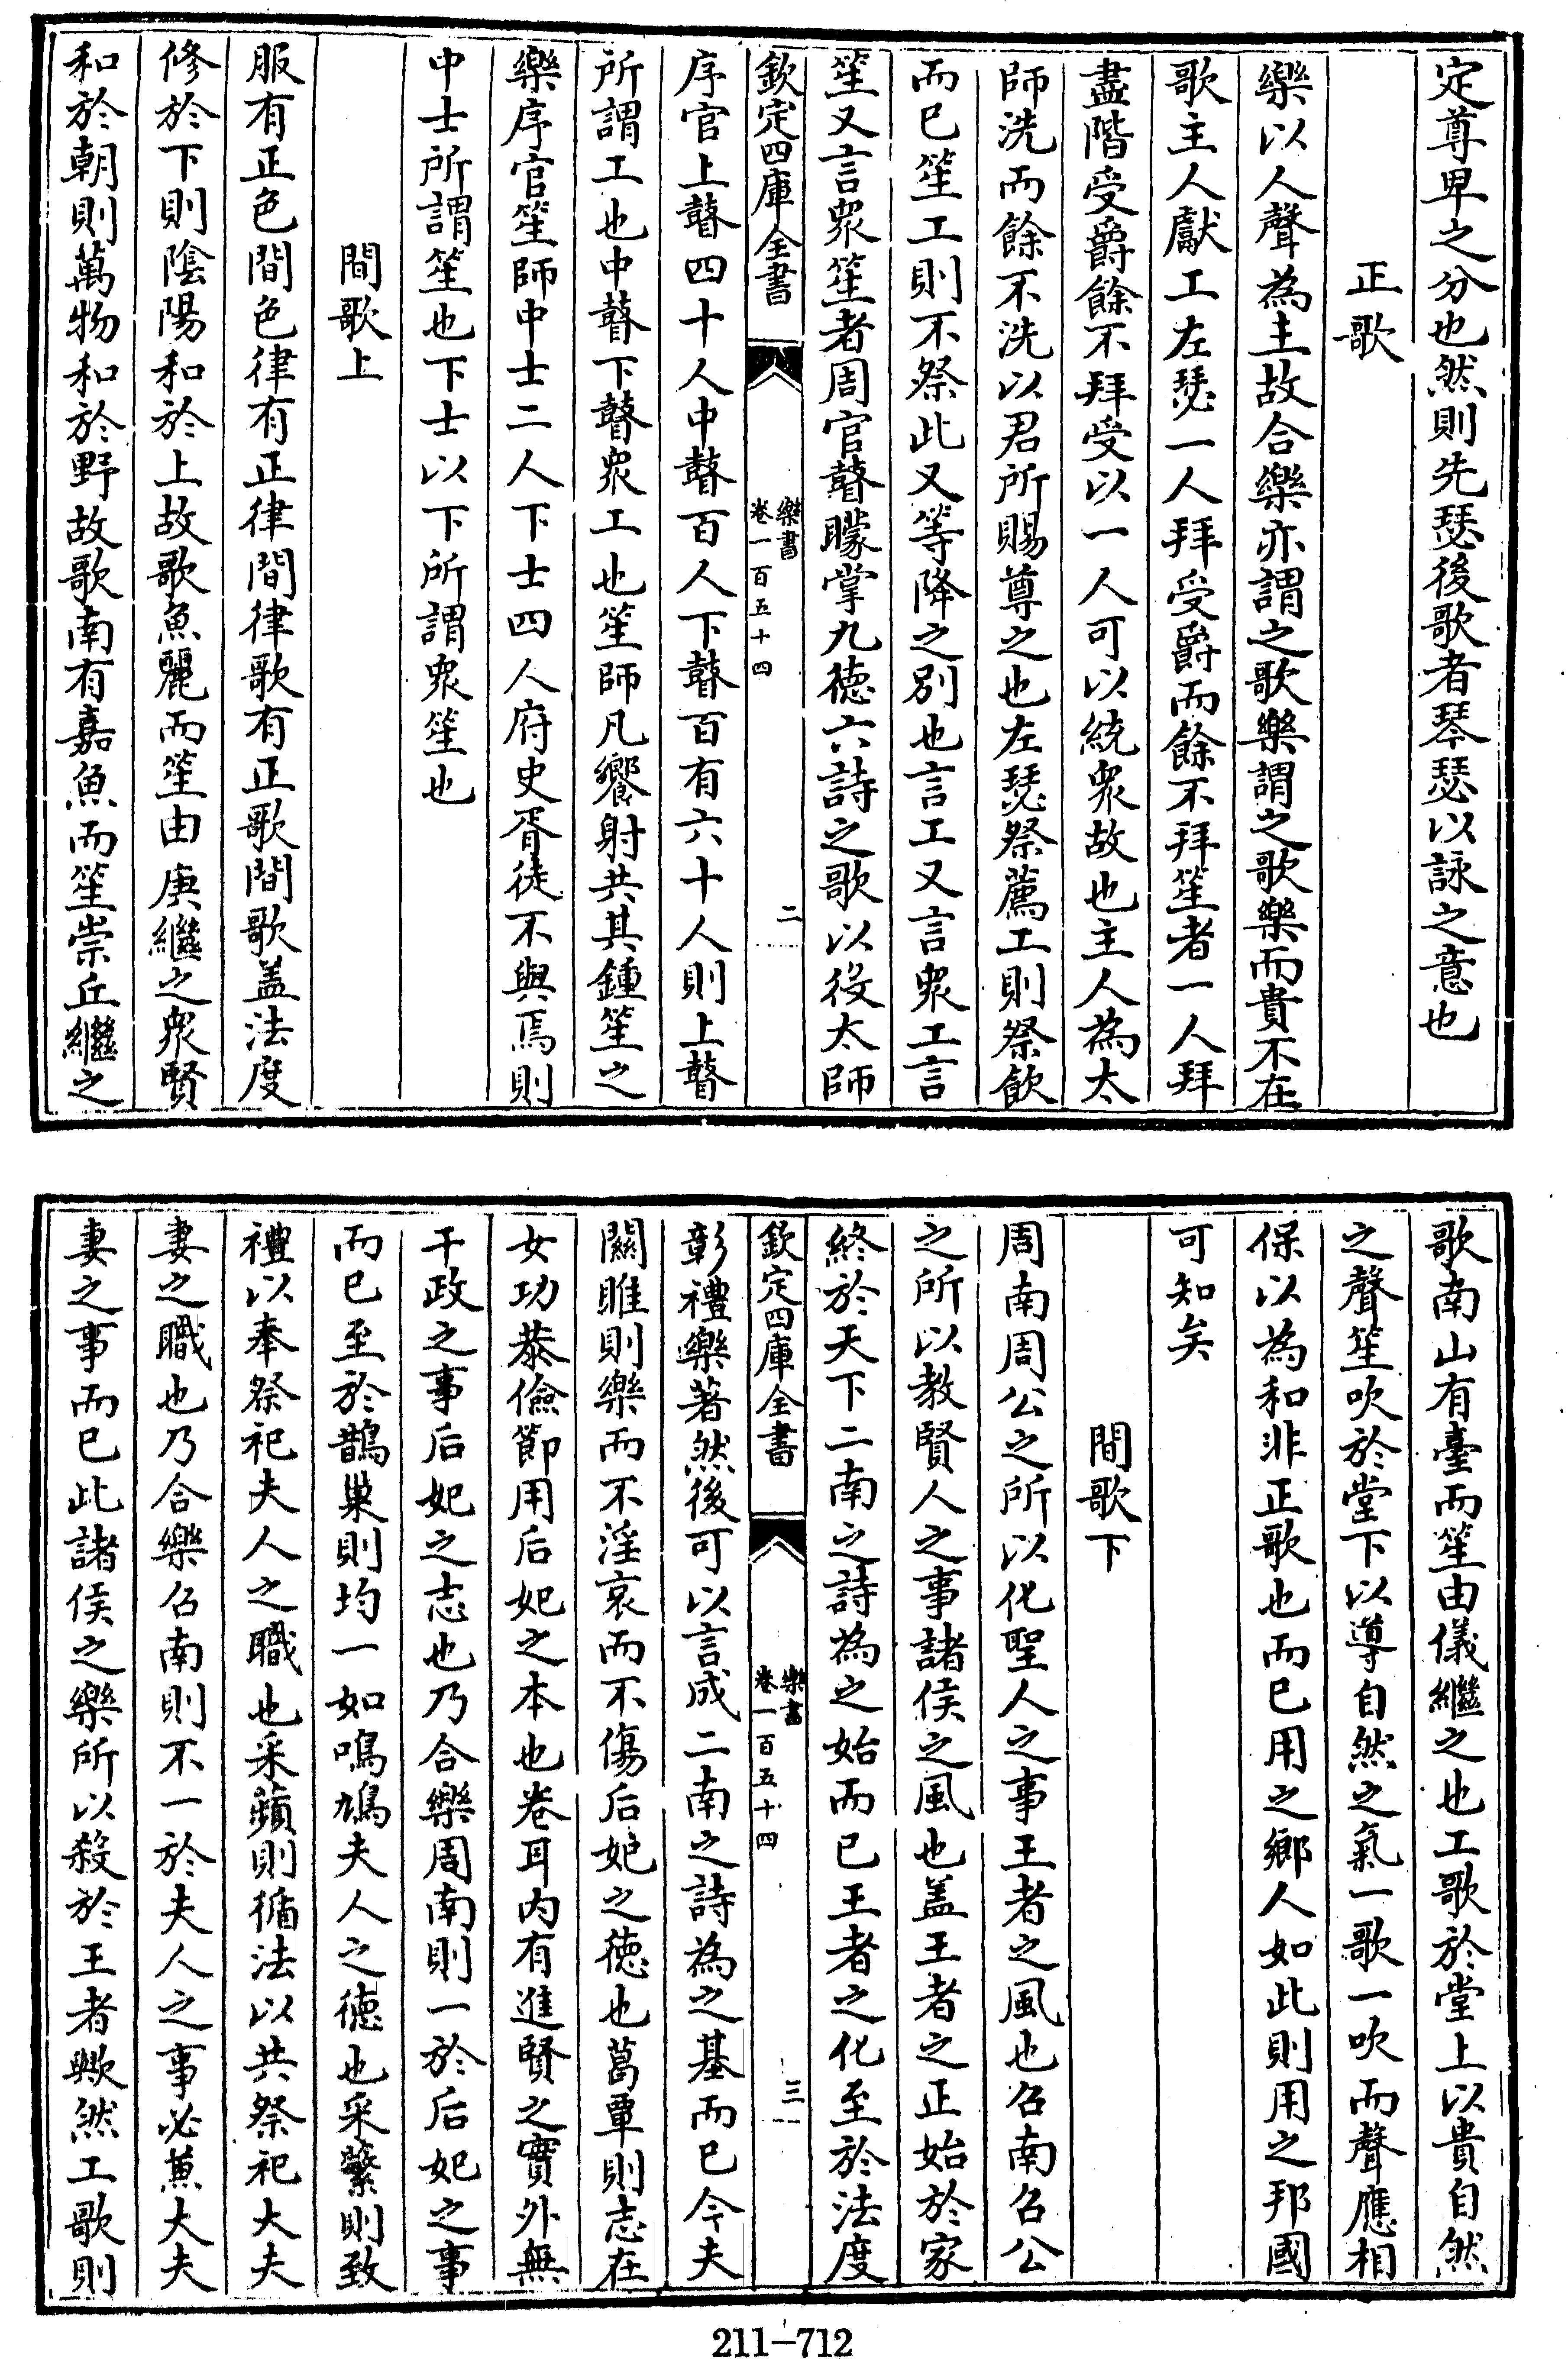 定尊卑之分也然則先瑟後歌者琴瑟以詠之意也
正歌
樂以人聲為主故合樂亦謂之歌樂謂之歌樂而貴不在
歌主人獻工左瑟一人拜受爵而餘不拜笙者一人拜
盡階受爵餘不拜受以一人可以統衆故也主人為太
師洗而餘不洗以君所賜尊之也左瑟祭薦工則祭飲
而已笙工則不祭此又等降之別也言工又言衆工言
笙又言衆笙者周官瞽矇掌九德六詩之歌以役太師
欽定四庫全書
樂書
卷一百五十四
二
序官上瞽四十人中瞽百人下瞽百有六十人則上瞽
所謂工也中瞽下瞽衆工也笙師凡饗射共其鍾笙之
樂序官笙師中士二人下士四人府史胥徒不與焉則
中士所謂笙也下士以下所謂衆笙也
間歌上
服有正色間色律有正律間律歌有正歌間歌盖法度
修於下則陰陽和於上故歌魚麗而笙由庚繼之衆賢
和於朝則萬物和於野故歌南有嘉魚而笙崇丘繼之
歌南山有臺而笙由儀繼之也工歌於堂上以貴自然
之聲笙吹於堂下以導自然之氣一歌一吹而聲應相
保以為和非正歌也而已用之鄉人如此則用之邦國
可知矣
間歌下
周南周公之所以化聖人之事王者之風也召南召公
之所以教賢人之事諸侯之風也盖王者之正始於家
終於天下二南之詩為之始而已王者之化至於法度
欽定四庫全書
樂書
卷一百五十四
三
彰禮樂著然後可以言成二南之詩為之基而已今夫
關雎則樂而不淫哀而不傷后妃之德也葛覃則志在
女功恭儉節用后妃之本也卷耳内有進賢之實外無
干政之事后妃之志也乃合樂周南則一於后妃之事
而已至於鵲巢則均一如鳲鳩夫人之德也采蘩則致
禮以奉祭祀夫人之職也采蘋則循法以共祭祀大夫
妻之職也乃合樂召南則不一於夫人之事必蒹大夫
妻之事而已此諸侯之樂所以殺於王者歟然工歌則
211-712